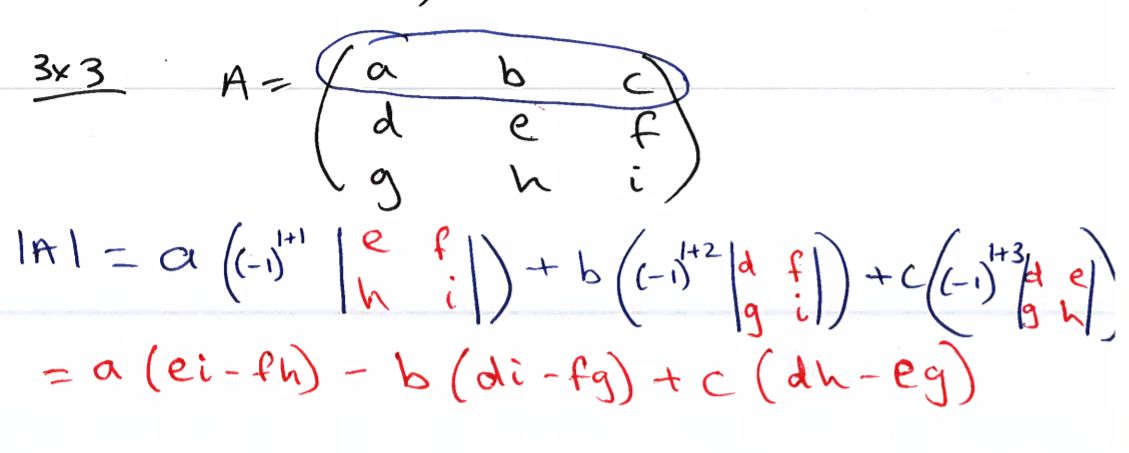 3x3 A = ( a b c
d e f
g h i )
|A| = a ((-1)^{1+1} | e f
h i |) + b ((-1)^{1+2} | d f
g i |) + c ((-1)^{1+3} | d e
g h |)
= a (ei - fh) - b (di - fg) + c (dh - eg)